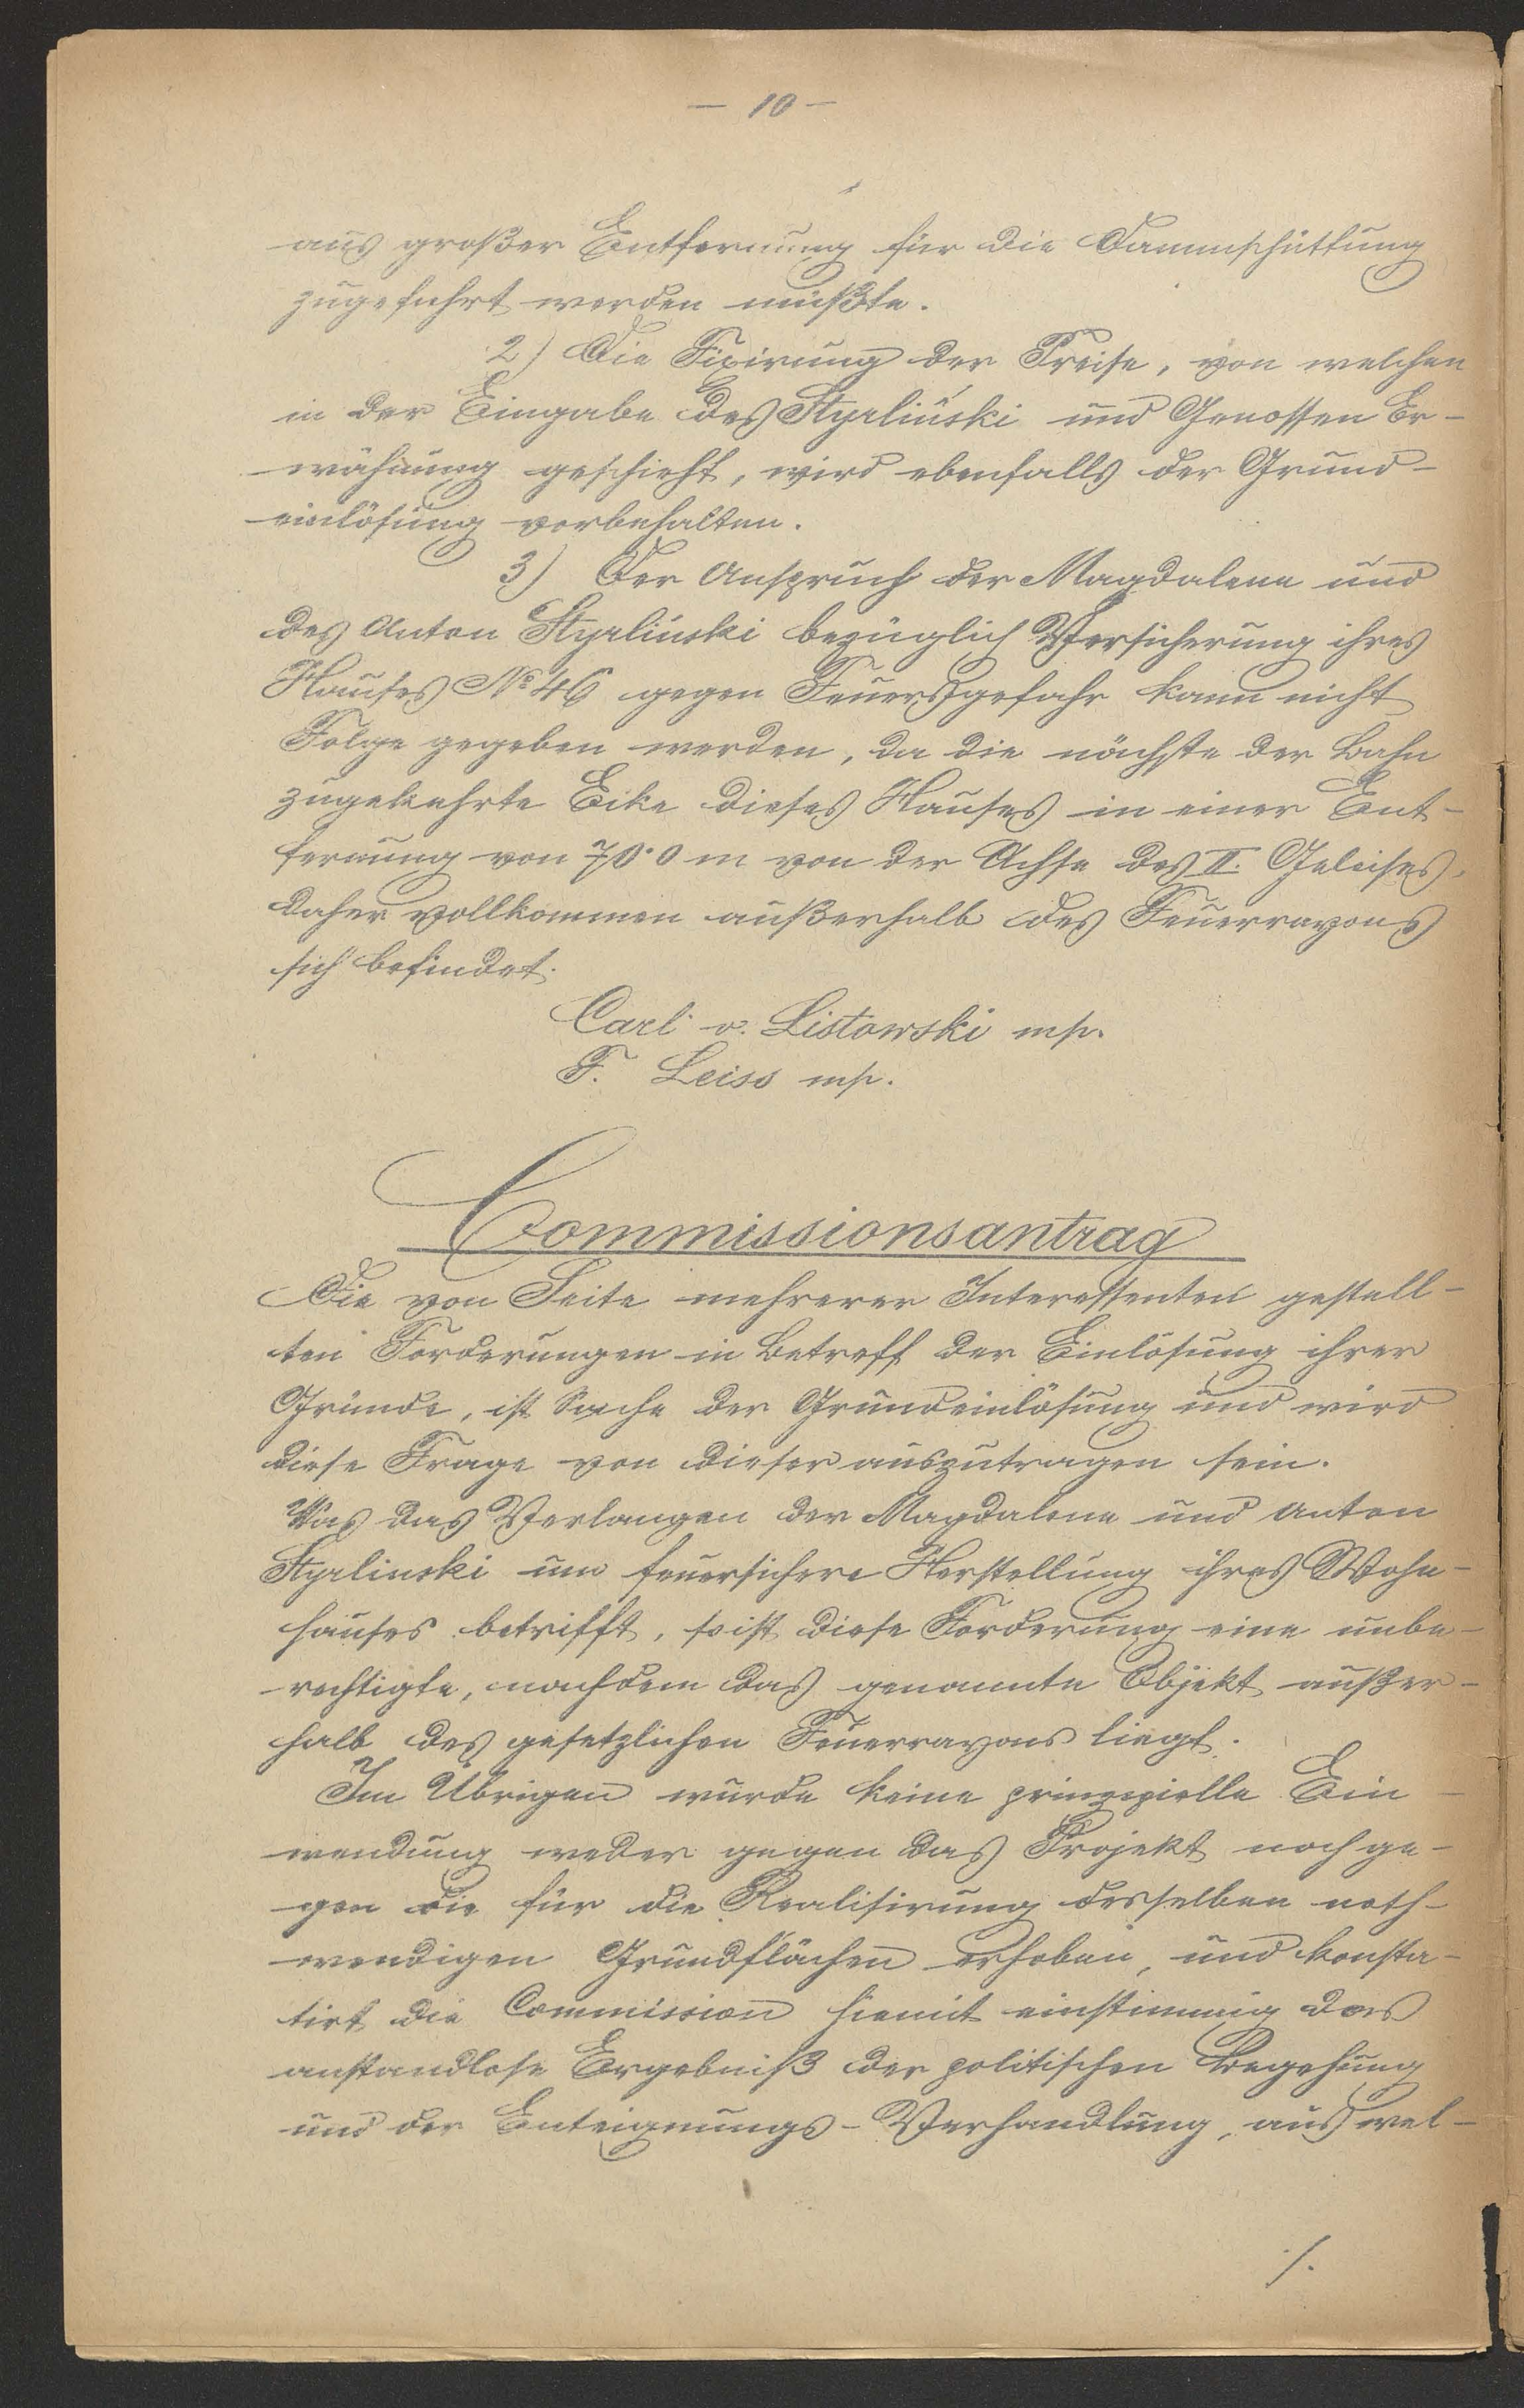 — 10 —
aus großer Entfernung für die Dammschüttung
zugeführt werden müßte.
2) Die Fixirung der Preise, von welchen
in der Eingabe des Styrliński und Genossen Er-
wähnung geschieht, wird ebenfalls der Grund-
einlösung vorbehalten.
3) Der Anspruch der Magdalena und
des Anton Styrliński bezüglich Versicherung ihres
Hauses No 46 gegen Feuersgefahr kann nicht
Folge gegeben werden, da die nächste der Bahn
zugekehrte Ecke dieses Hauses in einer Ent-
fernung von 70·0 m von der Achse des II. Geleises,
daher vollkommen außerhalb des Feuerrayons
sich befindet.
Carl v. Listowski mp.
F. Leiss mp.
Commissionsantrag
Die von Seite mehrerer Interessenten gestell-
ten Forderungen in Betreff der Einlösung ihrer
Gründe, ist Sache der Grundeinlösung und wird
diese Frage von dieser auszutragen sein.
Was das Verlangen der Magdalena und Anton
Styrlinski um feuersichere Herstellung ihres Wohn-
hauses betrifft, so ist diese Forderung eine unbe-
rechtigte, nachdem das genannte Objekt außer-
halb des gesetzlichen Feuerrayons liegt.
Im Übrigen wurde keine prinzipielle Ein-
wendung weder gegen das Projekt noch ge-
gen die für die Realisirung desselben noth-
wendigen Grundflächen erhoben, und konsta-
tirt die Commission hiemit einstimmig das
anstandlose Ergebniß der politischen Begehung
und der Enteignungs-Verhandlung, aus wel-
./.